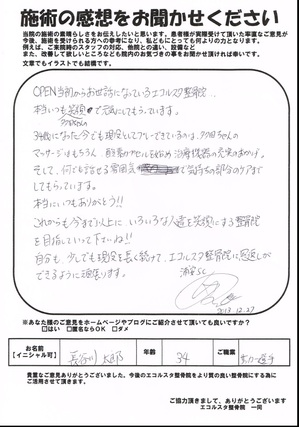 施術の感想をお聞かせください
当院の施術の素晴らしさをお伝えしたいと思います。患者様が実際受けて頂いた率直なご意見が
今後、施術を受けられる方への参考になり、私どもにとっても何よりの力となります。
例えば、ご来院時のスタッフの対応、他院との違い、設備など
また、改善して欲しいところなども院内のお気づきの事をお聞かせ頂ければ幸いです。
文章でもイラストでも結構です。
OPEN当初からお世話になっているエコルスタ整骨院。
本当いつも笑顔で元気にしてもらっています。
34歳になった今でも現役としてプレーできているのは、
マッサージはもちろん 治療機器の充実のおかげ。
そして、何でも話せる雰囲気 で気持ちの部分のケアまで
してもらっています。
本当にいつもありがとう!!
これからも今まで以上に いろいろな人達を笑顔にする整骨院
を目指していって下さいね!!
自分も、少しでも現役を長く続けて、エコルスタ整骨院に恩返しが
できるように頑張ります。
浦安SC
2013.12.27
※あなた様のご意見をホームページやブログにご紹介させて頂いても良いですか?
□はい □匿名ならOK □ダメ
お名前
【イニシャル可】
長谷川 太郎
年齢
34
ご職業
貴重なご意見ありがとうございました。今後のエコルスタ整骨院をより質の良い整骨院にする為に
ご活用させて頂きます。
ご協力頂きまして、ありがとうございます
エコルスタ整骨院 一同